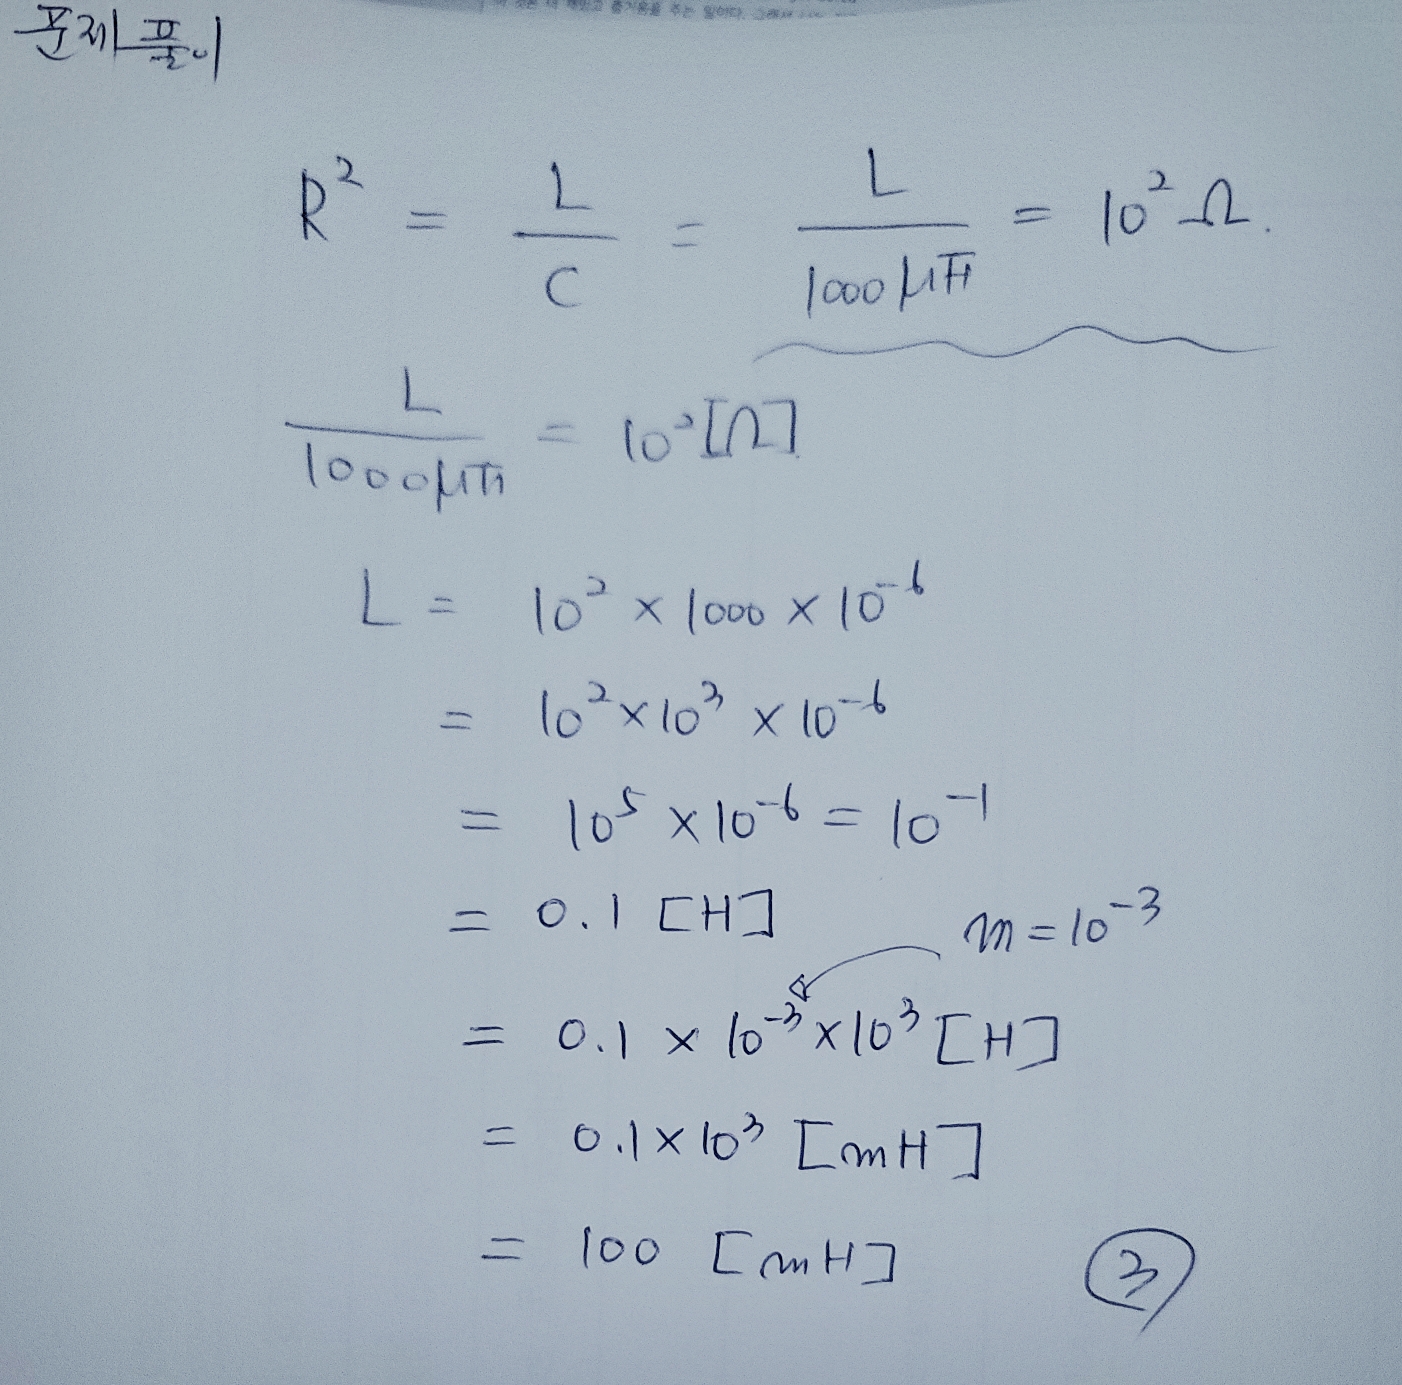 문제풀이
R² = L/C = L/1000μF = 10²Ω.
L/1000μF = 10²[Ω]
L = 10² × 1000 × 10⁻⁶
= 10² × 10³ × 10⁻⁶
= 10⁵ × 10⁻⁶ = 10⁻¹
= 0.1 [H]
m = 10⁻³
= 0.1 × 10⁻³ × 10³ [H]
= 0.1 × 10³ [mH]
= 100 [mH]
③